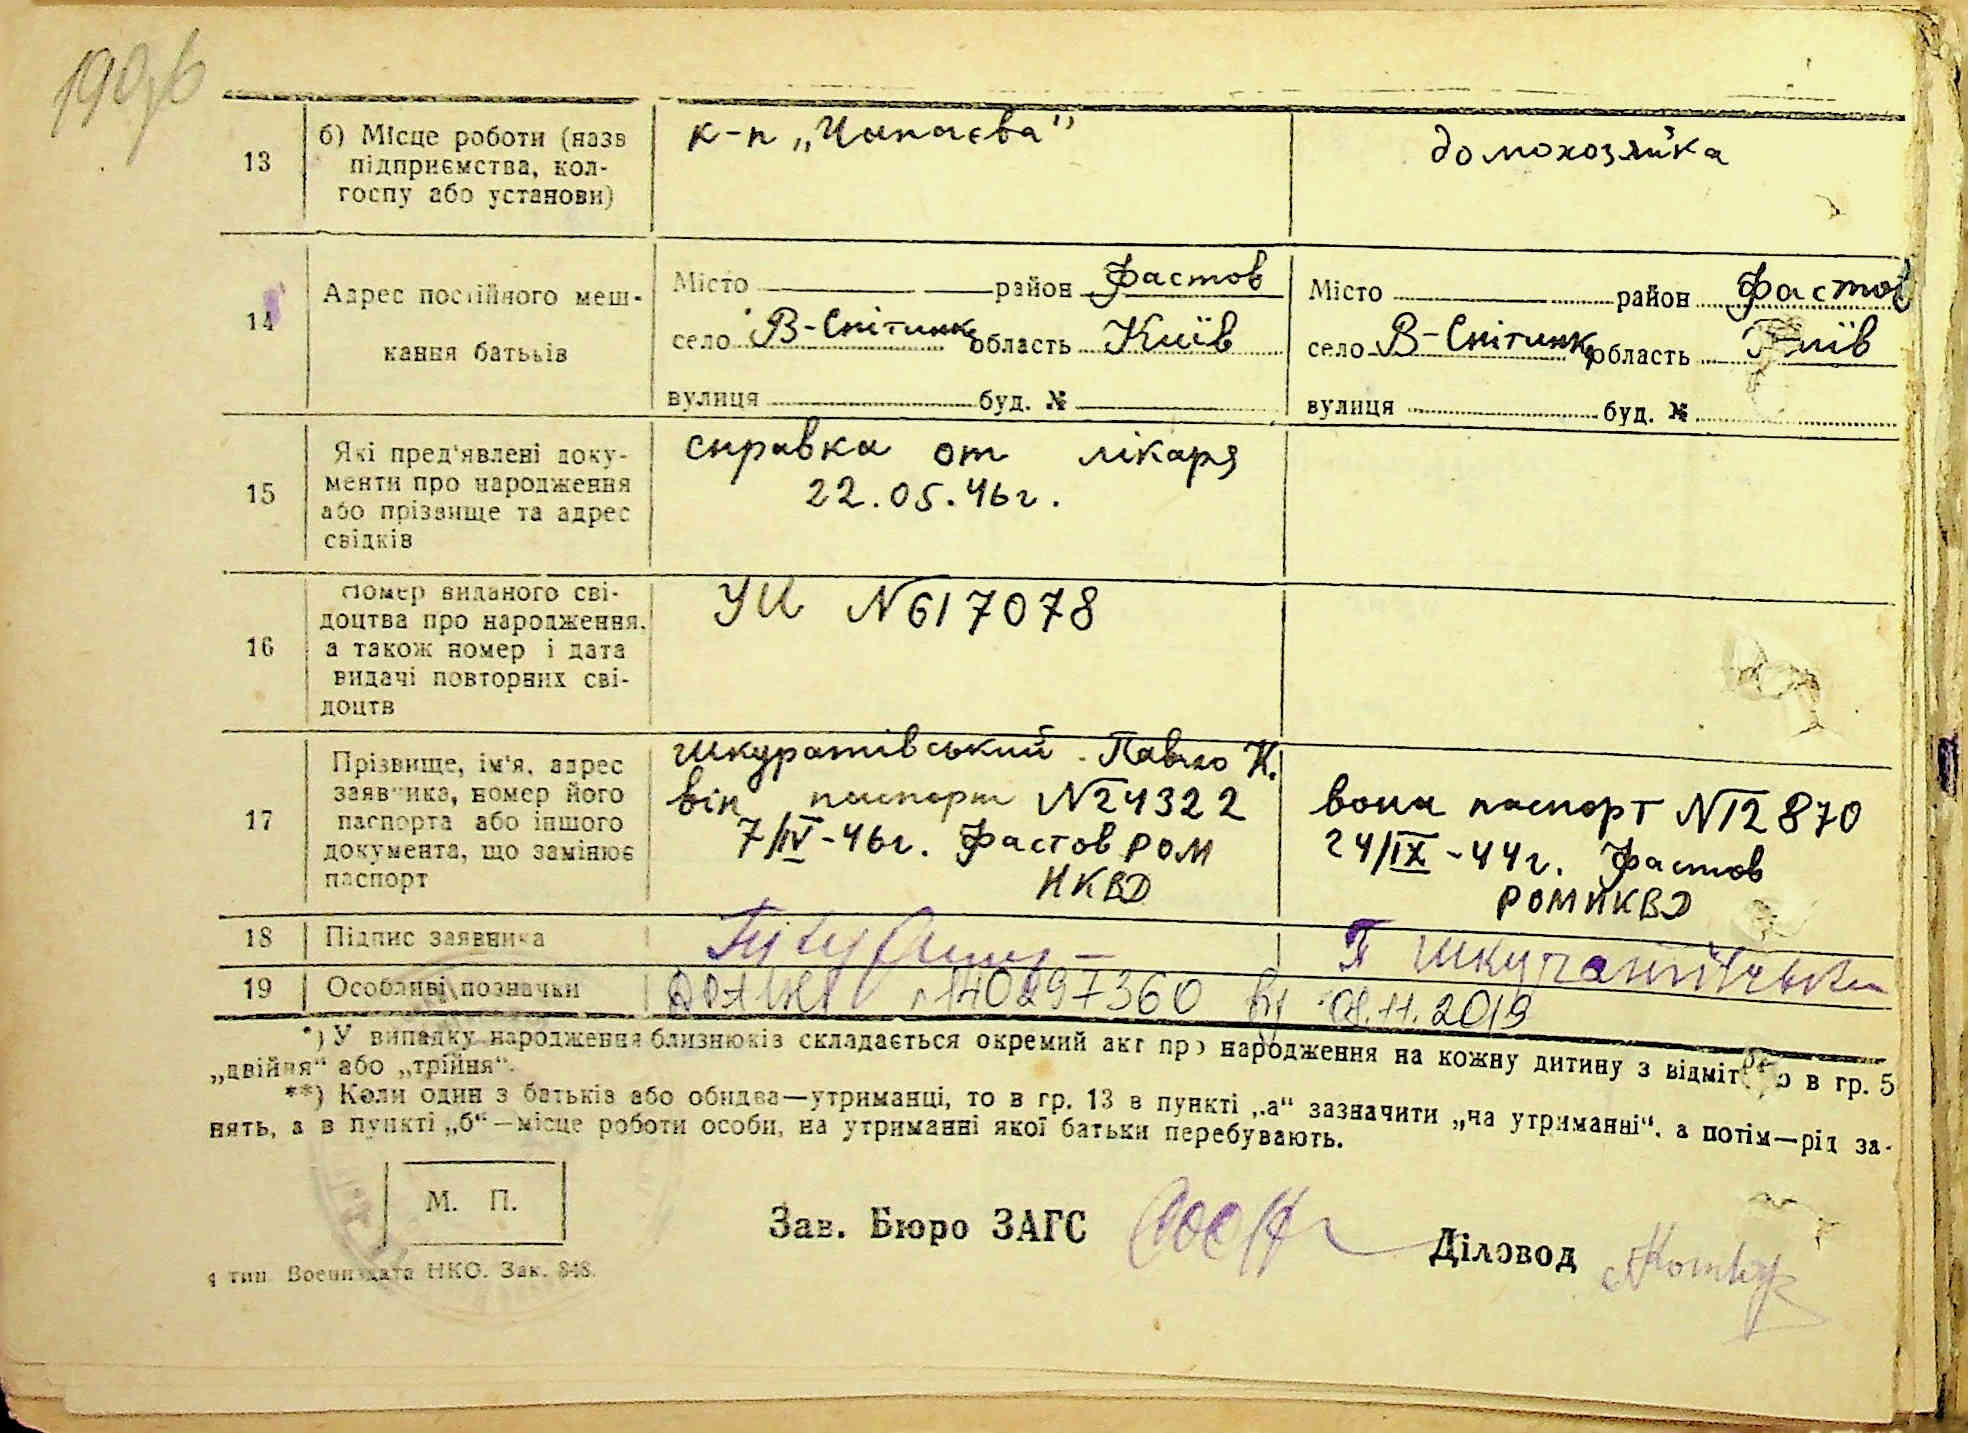 13
б) Місце роботи (назв
підприємства, кол-
госпу або установи)
к-п „Чапаєва"
домохозяйка
14
Адрес постійного меш-
кання батьків
Місто район Фастов
село В-Снітинк область Київ
вулиця буд. №
Місто район Фастов
село В-Снітинк область Київ
вулиця буд. №
15
Які пред'явлені доку-
менти про народження
або прізвище та адрес
свідків
справка от лікаря
22.05.46г.
16
Номер виданого сві-
доцтва про народження,
а також номер і дата
видачі повторних сві-
доцтв
УИ №617078
17
Прізвище, ім'я, адрес
заявника, номер його
паспорта або іншого
документа, що замінює
паспорт
Шкуратівський Павло Н.
він паспорт №24322
7/IV-46г. Фастов РОМ
НКВД
вона паспорт №12870
24/IX-44г. Фастов
РОМНКВД
18
Підпис заявника
19
Особливі позначки
140297360 08.11.2019
*) У випадку народження близнюків складається окремий акт про народження на кожну дитину з відміткою в гр. 5
„двійня" або „трійня".
**) Коли один з батьків або обидва—утриманці, то в гр. 13 в пункті „а" зазначити „на утриманні", а потім—рід за-
нять, а в пункті „б"—місце роботи особи, на утриманні якої батьки перебувають.
М. П.
Зав. Бюро ЗАГС
Діловод
тип. Воениздата НКО. Зак. 848.